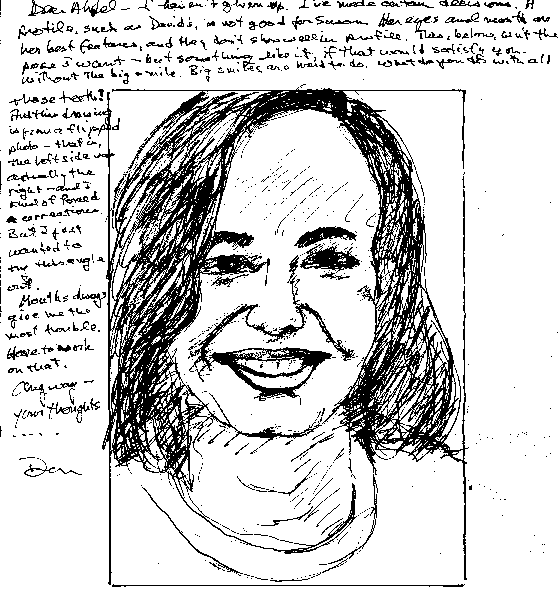 Dear Angel - I haven't given up. I've made certain decisions. A
profile, such as David's, is not good for Susan. Her eyes and mouth are
her best features, and they don't show well in profile. This, below, isn't the
pose I want - but something like it, if that would satisfy you.
without the big smile. Big smiles are hard to do. What do you do with all
those teeth?
And this drawing
is from a flipped
photo - that is,
the left side was
actually the
right - and I
kind of forced
a correction.
But I just
wanted to
try this angle
out.
Mouths always
give me the
most trouble.
Have to work
on that.
Anyway -
your thoughts
.....
Don